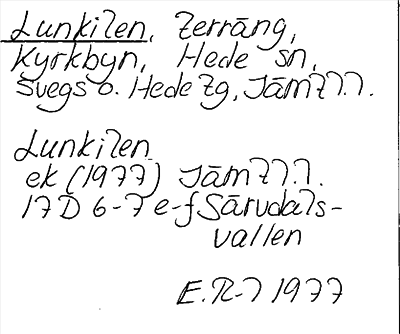 Lunkilen, terräng,
Kyrkbyn, Hede sn,
Svegs o. Hede tg, Jämtl.l.
Lunkilen
ek (1977) Jämtl.l.
17D 6-7 e-f Särvdals-
vallen
E.R-l 1977